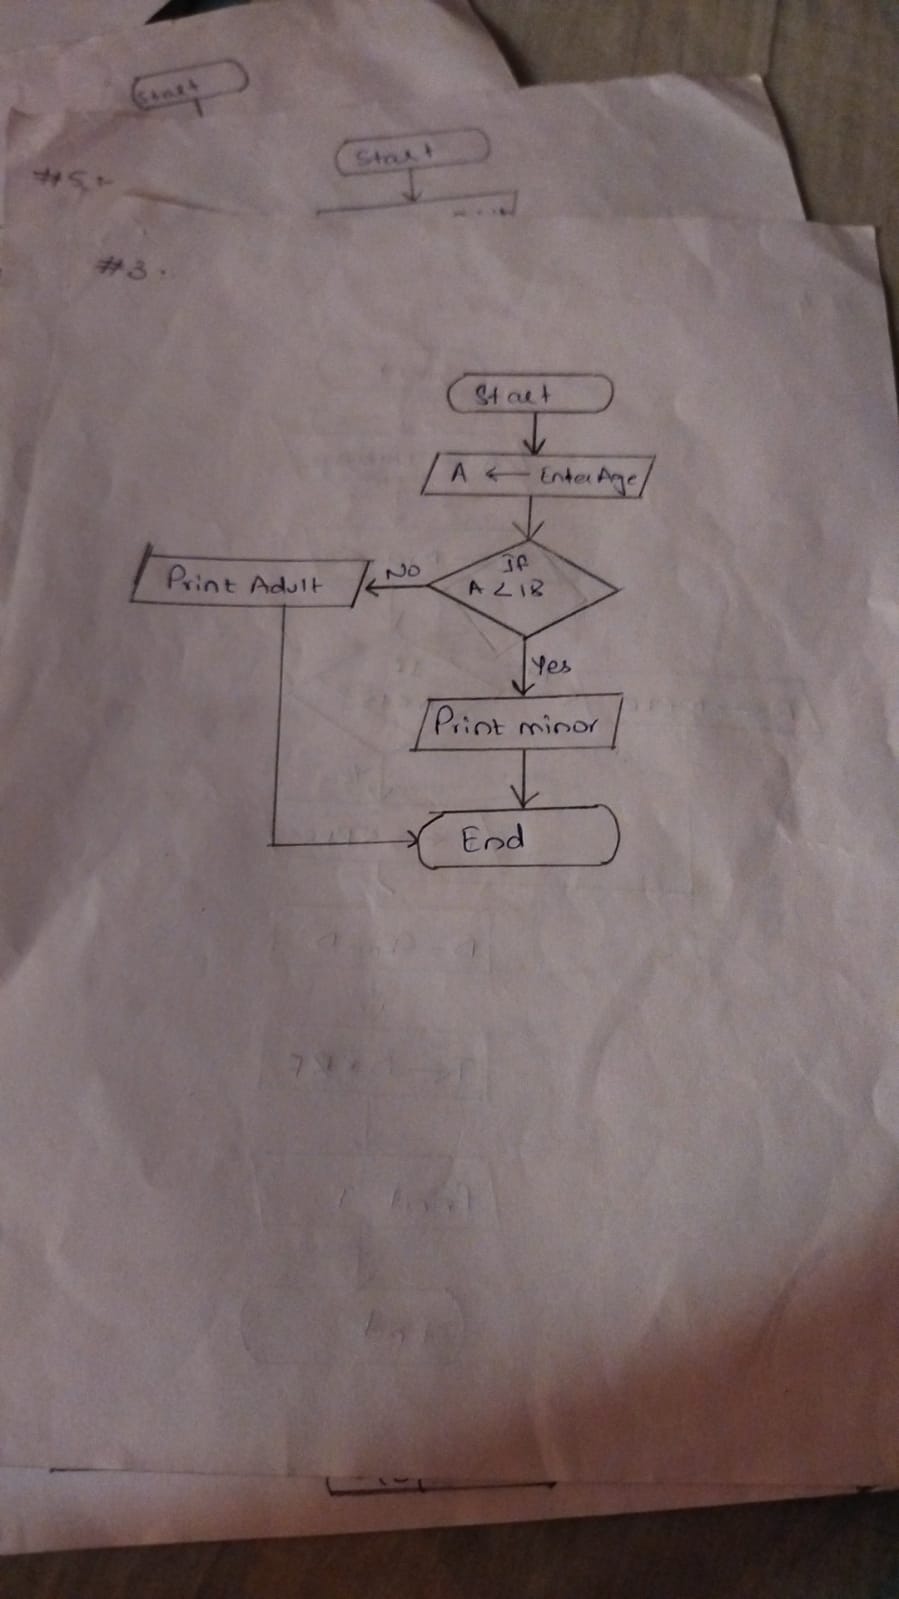 Start
Start
#5.
#3.
Start
A ← Enter Age
If
A < 18
No
Print Adult
Yes
Print minor
End